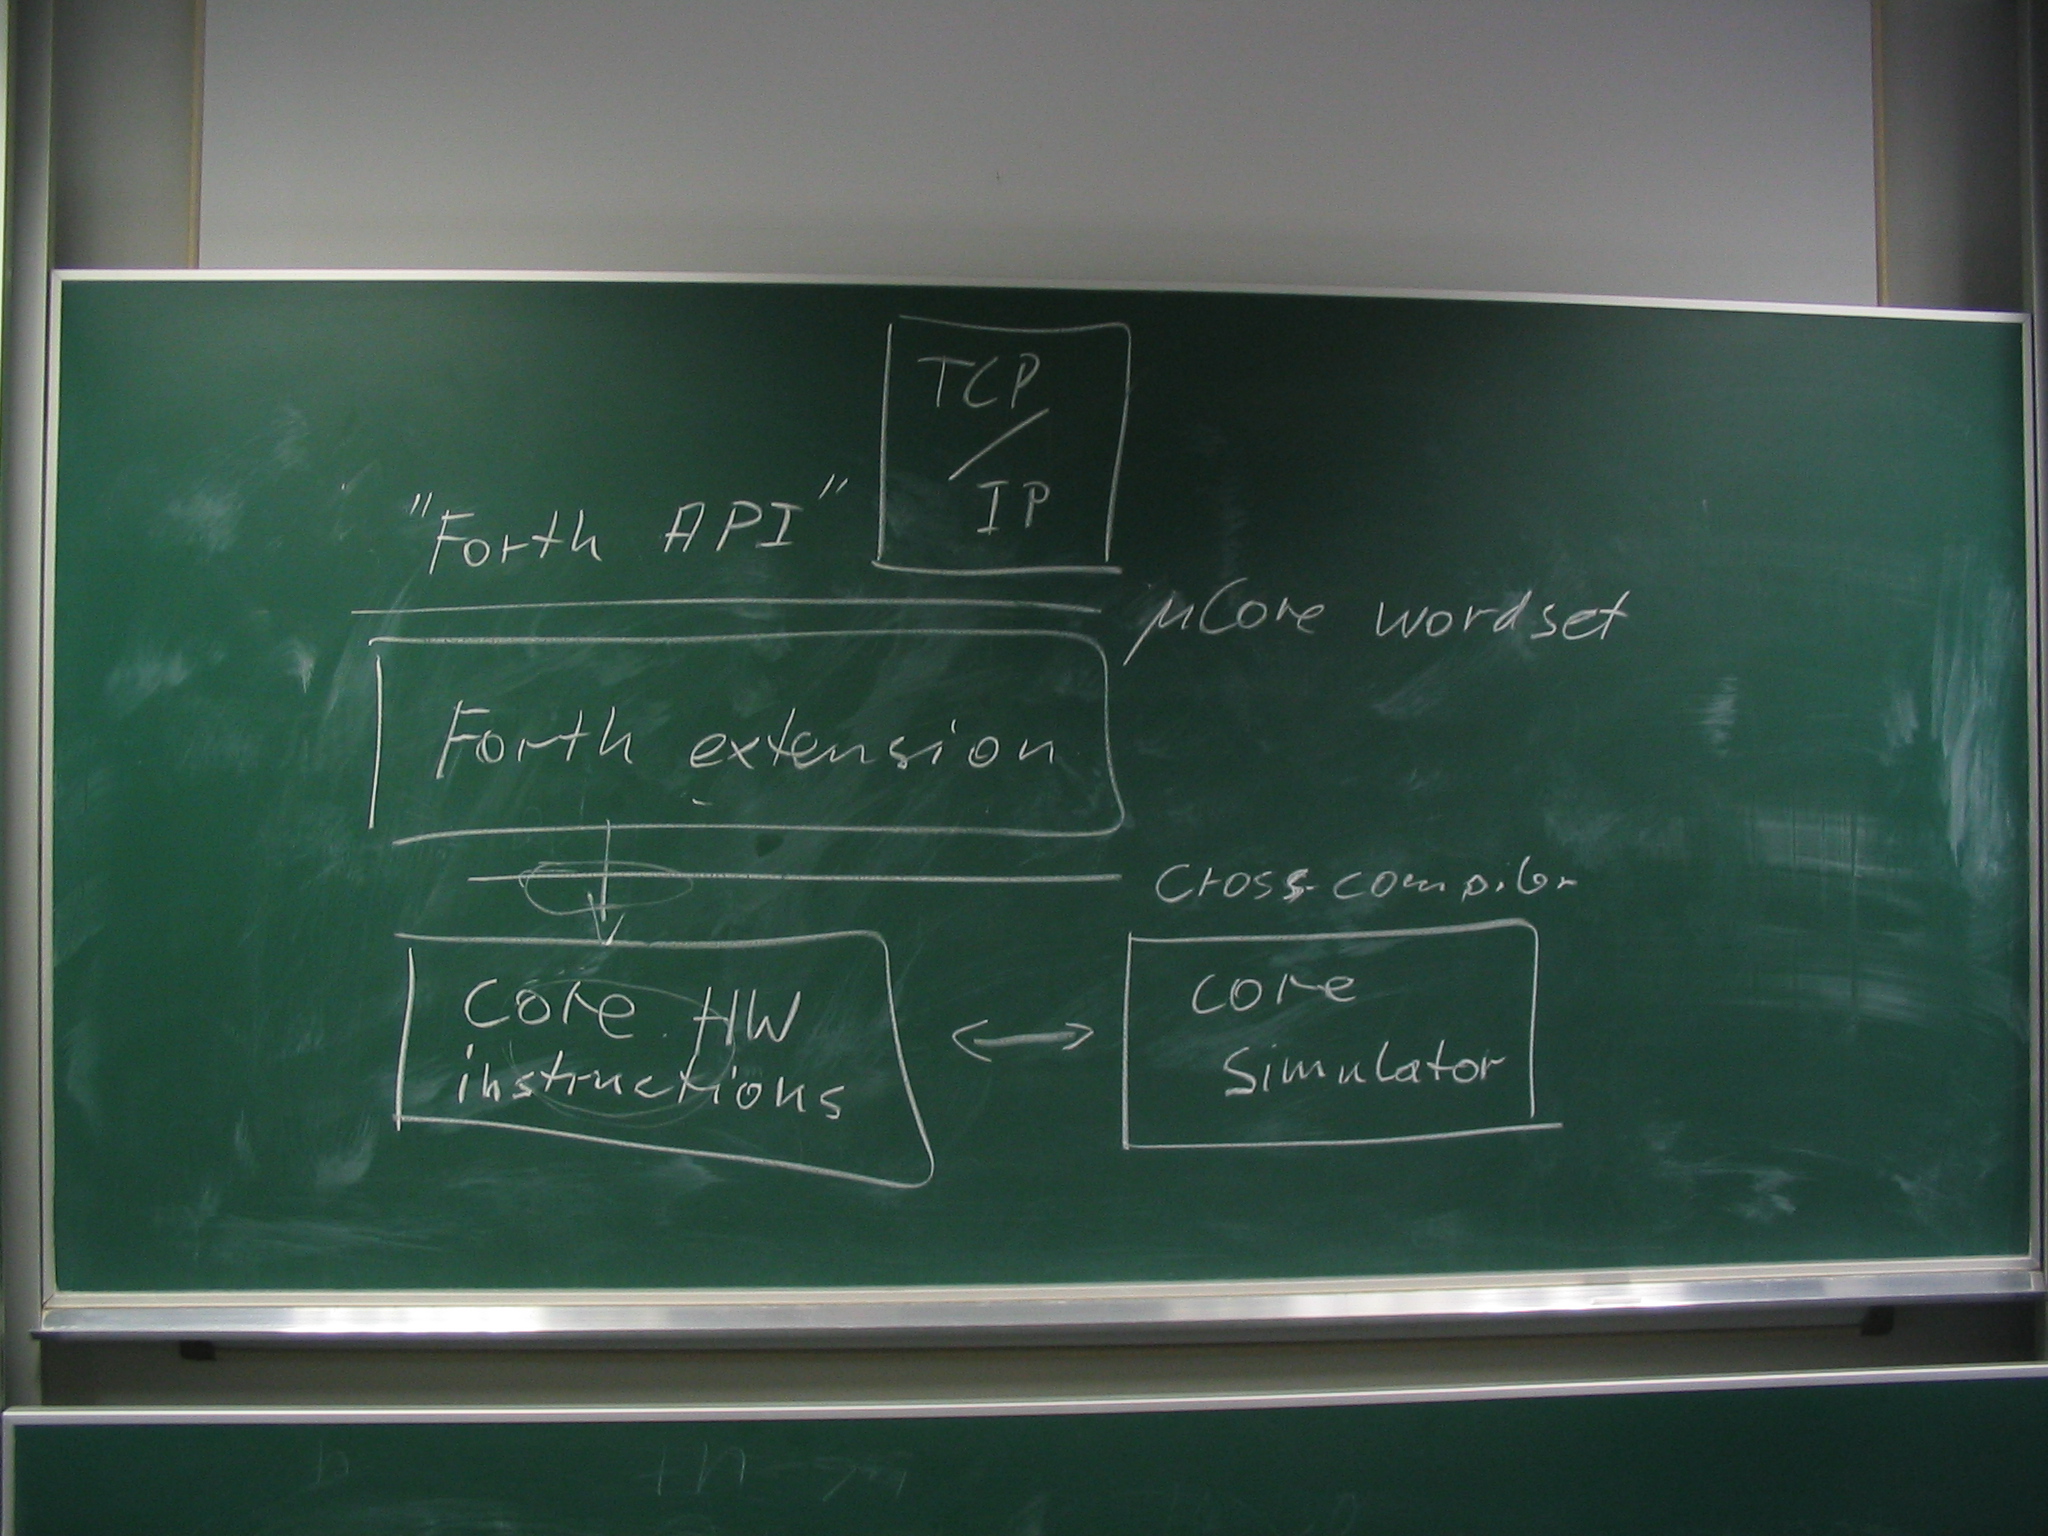 TCP
/
IP
"Forth API"
µCore wordset
Forth extension
Cross-compiler
Core HW
instructions
Core
Simulator